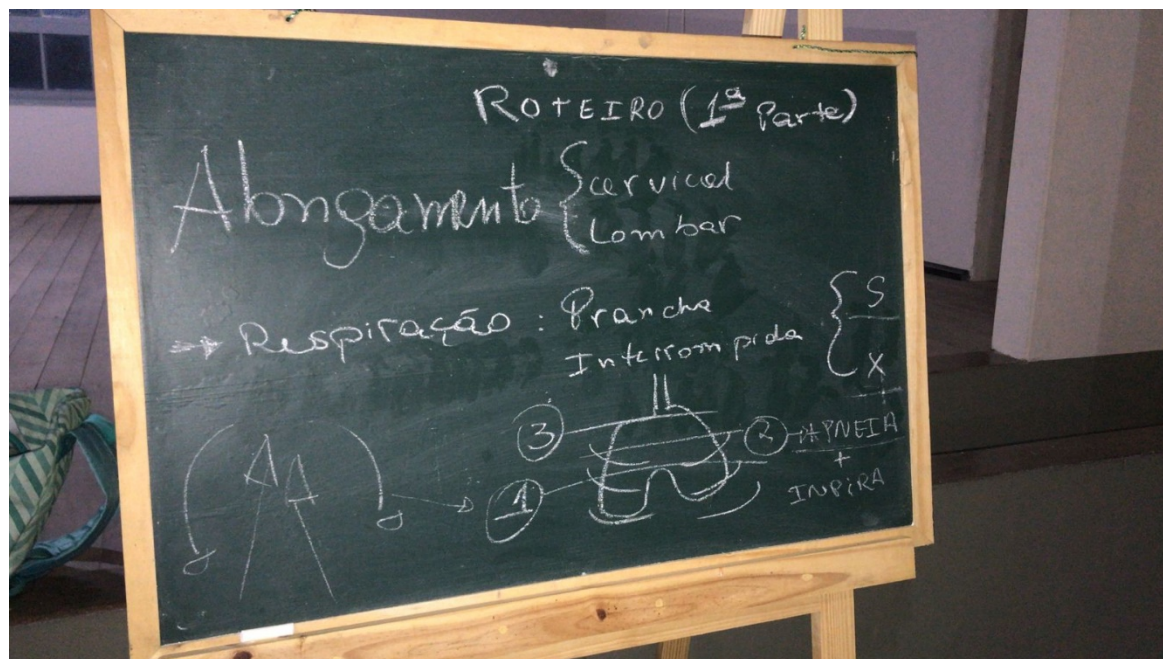 ROTEIRO (1ª Parte)
Alongamento { cervical
Lombar
→ Respiração : Prancha
Interrompida
{ S
X
3
2 → APNEIA
+
INPIRA
1